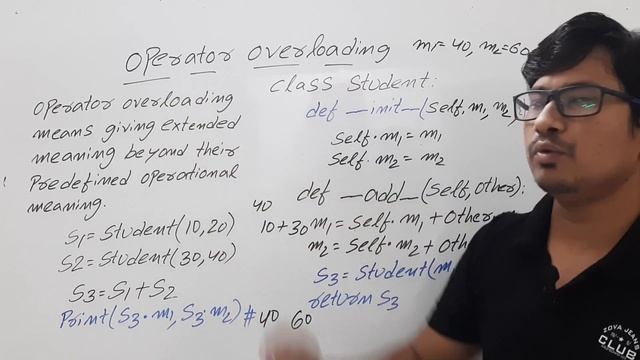 Operator Overloading m1=40, m2=60
Operator overloading
means giving extended
meaning beyond their
Predefined operational
meaning.
S1=Student(10,20)
S2=Student(30,40)
S3=S1+S2
Print(S3.m1, S3.m2) # 40 60
Class Student:
def __init__(Self, m1, m2
Self.m1 = m1
Self.m2 = m2
def __add__(Self, Other):
40
10+30 m1 = Self.m1 + Other
m2 = Self.m2 + Oth
S3 = Student(m
return S3
ZOVA
CLUB